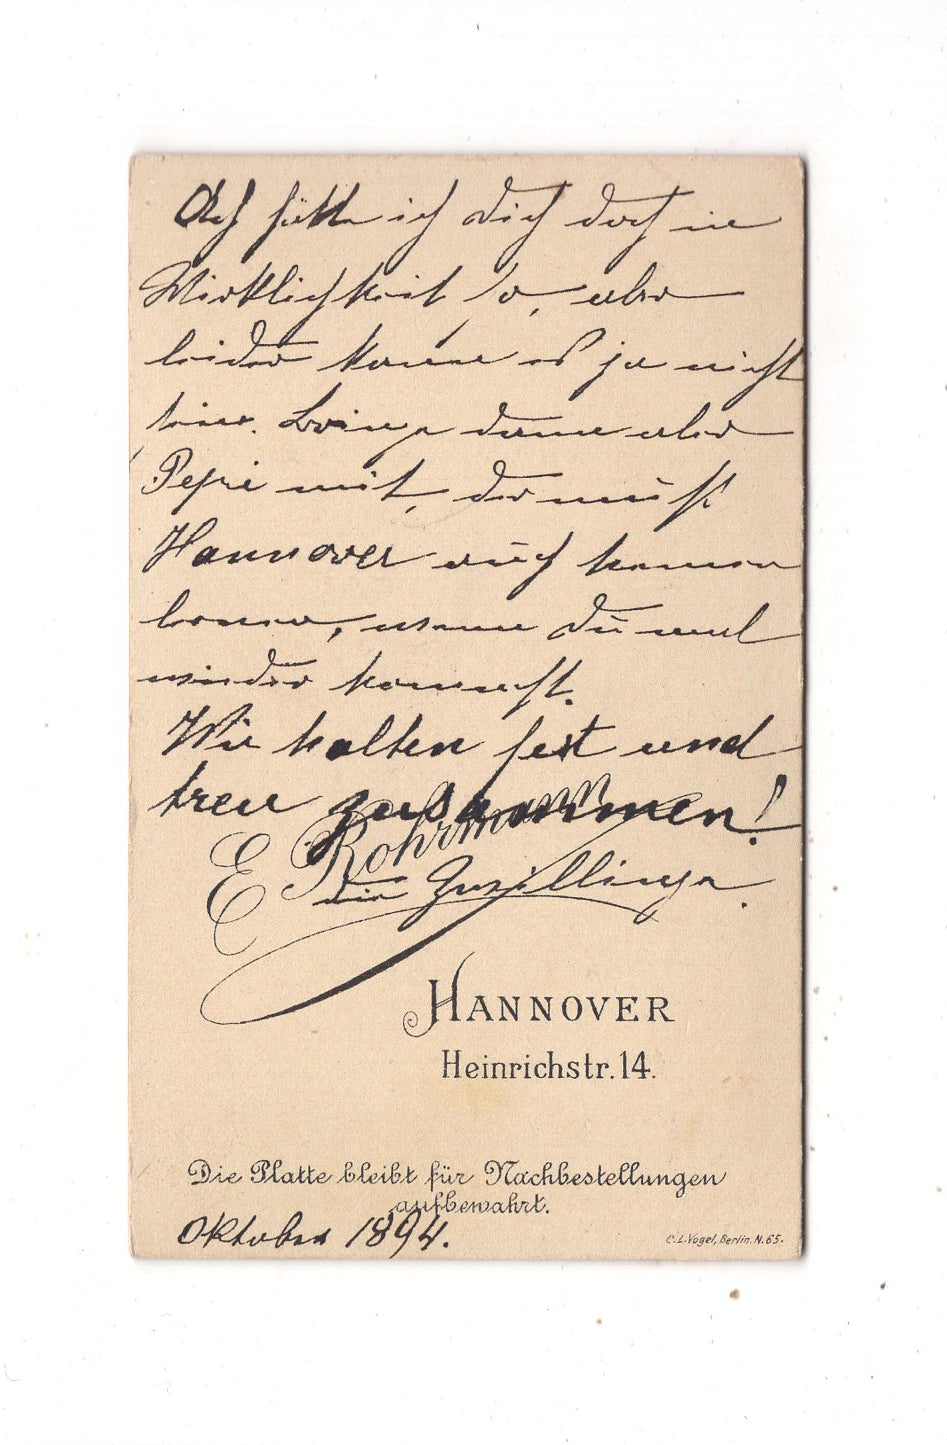 Ach hätte ich Dich doch in
Wirklichkeit so, aber
leider kann es ja nicht
sein. Bringe dann aber
Pepi mit, der muß
Hannover auch kennen
lernen, wenn Du mal
wieder kommst.
Wir halten fest und
treu zusammen!
E Rohrmann
die Zwillinge.
HANNOVER
Heinrichstr. 14.
Die Platte bleibt für Nachbestellungen
aufbewahrt.
Oktober 1894.
C. L. Vogel, Berlin. N. 65.